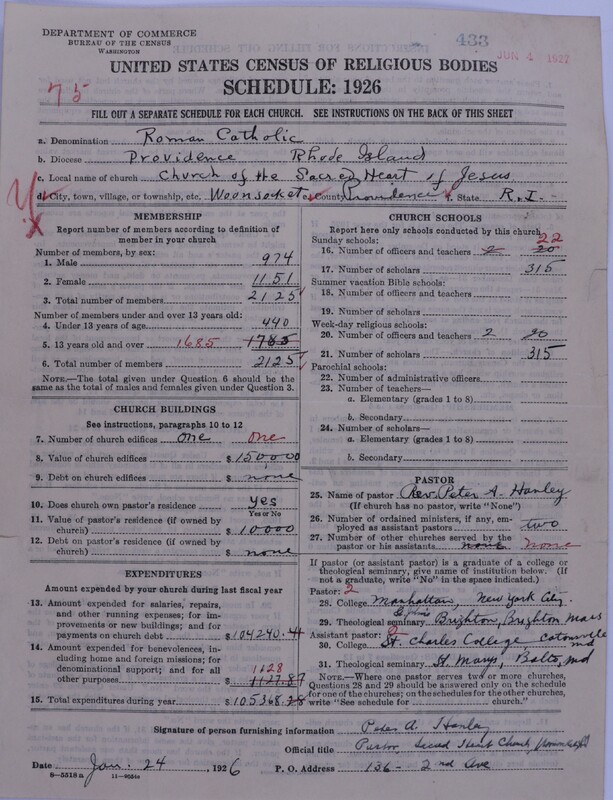 DEPARTMENT OF COMMERCE
BUREAU OF THE CENSUS
WASHINGTON
433
JUN 4 1927
UNITED STATES CENSUS OF RELIGIOUS BODIES
SCHEDULE: 1926
75
FILL OUT A SEPARATE SCHEDULE FOR EACH CHURCH. SEE INSTRUCTIONS ON THE BACK OF THIS SHEET
a. Denomination Roman Catholic
b. Diocese Providence Rhode Island
c. Local name of church Church of the Sacred Heart of Jesus
d. City, town, village, or township, etc. Woonsocket e. County Providence f. State R.I.
MEMBERSHIP
Report number of members according to definition of member in your church
Number of members, by sex:
1. Male 974
2. Female 1151
3. Total number of members 2125
Number of members under and over 13 years old:
4. Under 13 years of age 440
5. 13 years old and over 1685 1785
6. Total number of members 2125
NOTE.—The total given under Question 6 should be the same as the total of males and females given under Question 3.
CHURCH BUILDINGS
See instructions, paragraphs 10 to 12
7. Number of church edifices one one
8. Value of church edifices $150000
9. Debt on church edifices $ none
10. Does church own pastor's residence? yes
Yes or No
11. Value of pastor's residence (if owned by church) $ 10000
12. Debt on pastor's residence (if owned by church) $ none
EXPENDITURES
Amount expended by your church during last fiscal year
13. Amount expended for salaries, repairs, and other running expenses; for improvements or new buildings; and for payments on church debt $104240.41
14. Amount expended for benevolences, including home and foreign missions; for denominational support; and for all other purposes 1128 $ 1127.87
15. Total expenditures during year $105368.28
CHURCH SCHOOLS
Report here only schools conducted by this church
Sunday schools: 22
16. Number of officers and teachers 2 20
17. Number of scholars 315
Summer vacation Bible schools:
18. Number of officers and teachers
19. Number of scholars
Week-day religious schools:
20. Number of officers and teachers 2 20
21. Number of scholars 315
Parochial schools:
22. Number of administrative officers
23. Number of teachers—
a. Elementary (grades 1 to 8)
b. Secondary
24. Number of scholars—
a. Elementary (grades 1 to 8)
b. Secondary
PASTOR
25. Name of pastor Rev. Peter A. Hanley
(If church has no pastor, write "None")
26. Number of ordained ministers, if any, employed as assistant pastors two
27. Number of other churches served by the pastor or his assistants none none
If pastor (or assistant pastor) is a graduate of a college or theological seminary, give name of institution below. (If not a graduate, write "No" in the space indicated.)
Pastor: 2
28. College Manhattan, New York City.
29. Theological seminary Brighton, Brighton Mass
Assistant pastor: 2
30. College St. Charles College Catonsville Md
31. Theological seminary St Mary's, Balto, Md
NOTE.—Where one pastor serves two or more churches, Questions 28 and 29 should be answered only on the schedule for one of the churches; on the schedules for the other churches, write "See schedule for church."
Signature of person furnishing information Peter A. Hanley
Official title Pastor, Sacred Heart Church
Date Jan. 24, 1926 P. O. Address 136 - 2nd Ave
8—5518a 11—9554a